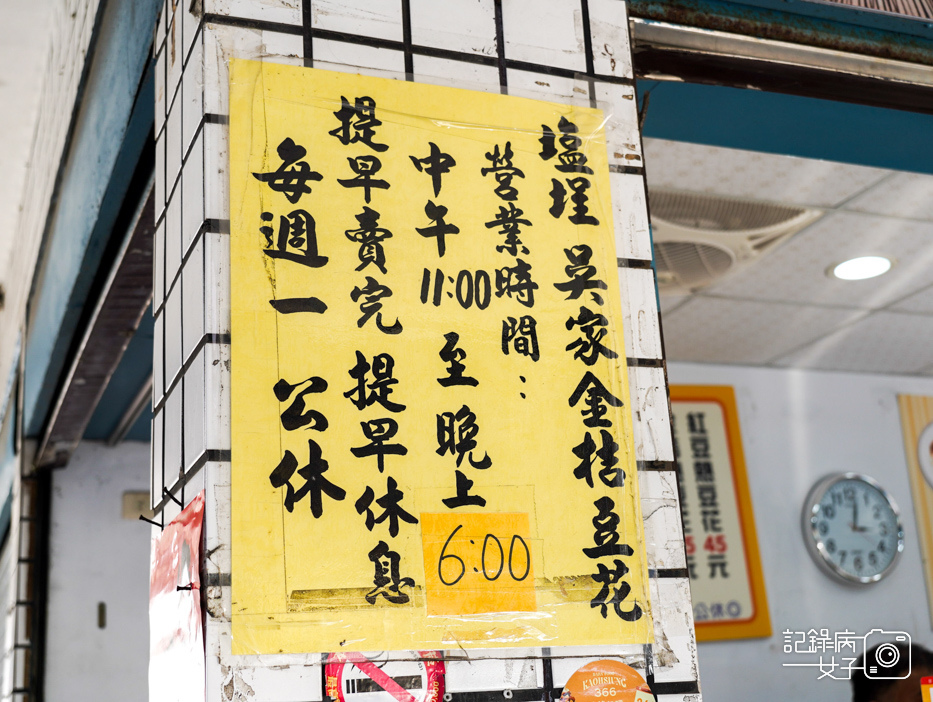 塩埕 吳家金桔豆花
營業時間:
中午 11:00 至 晚上 6:00
提早賣完 提早休息
每週一 公休
紅豆熱豆花
45元
公休
記錄病女子
KAOHSIUNG
366